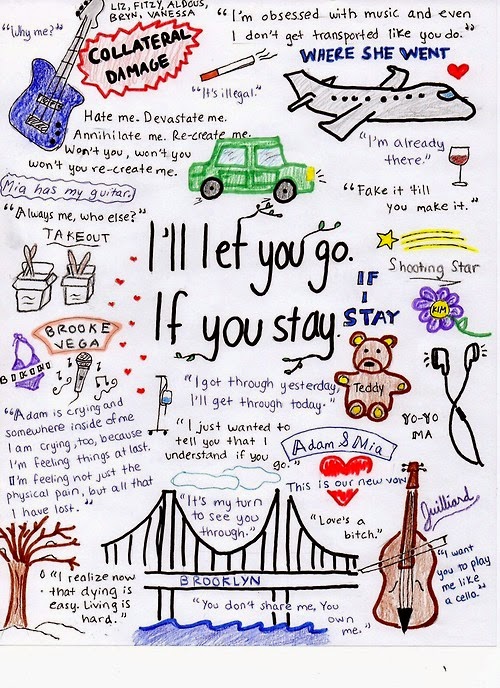 LIZ, FITZY, ALDOUS,
BRYN, VANESSA
"Why me?"
COLLATERAL
DAMAGE
"I'm obsessed with music and even
I don't get transported like you do."
WHERE SHE WENT
"It's illegal."
Hate me. Devastate me.
Annihilate me. Re-create me.
Won't you, won't you
won't you re-create me.
"I'm already
there."
Mia has my guitar.
"Fake it 'till
you make it."
"Always me, who else?"
TAKEOUT
I'll let you go.
If you stay.
Shooting Star
IF
I
STAY
KIM
BROOKE
VEGA
BIKINI
Teddy
"I got through yesterday,
I'll get through today."
YO-YO
MA
"Adam is crying and
somewhere inside of me
I am crying, too, because
I'm feeling things at last.
I'm feeling not just the
physical pain, but all that
I have lost."
"I just wanted to
tell you that I
understand if you
go."
Adam & Mia
This is our new van
Juilliard
"It's my turn
to see you
through."
"Love's a
bitch."
"I want
you to play
me like
a cello."
"I realize now
that dying is
easy. Living is
hard."
BROOKLYN
"You don't share me. You
own
me."